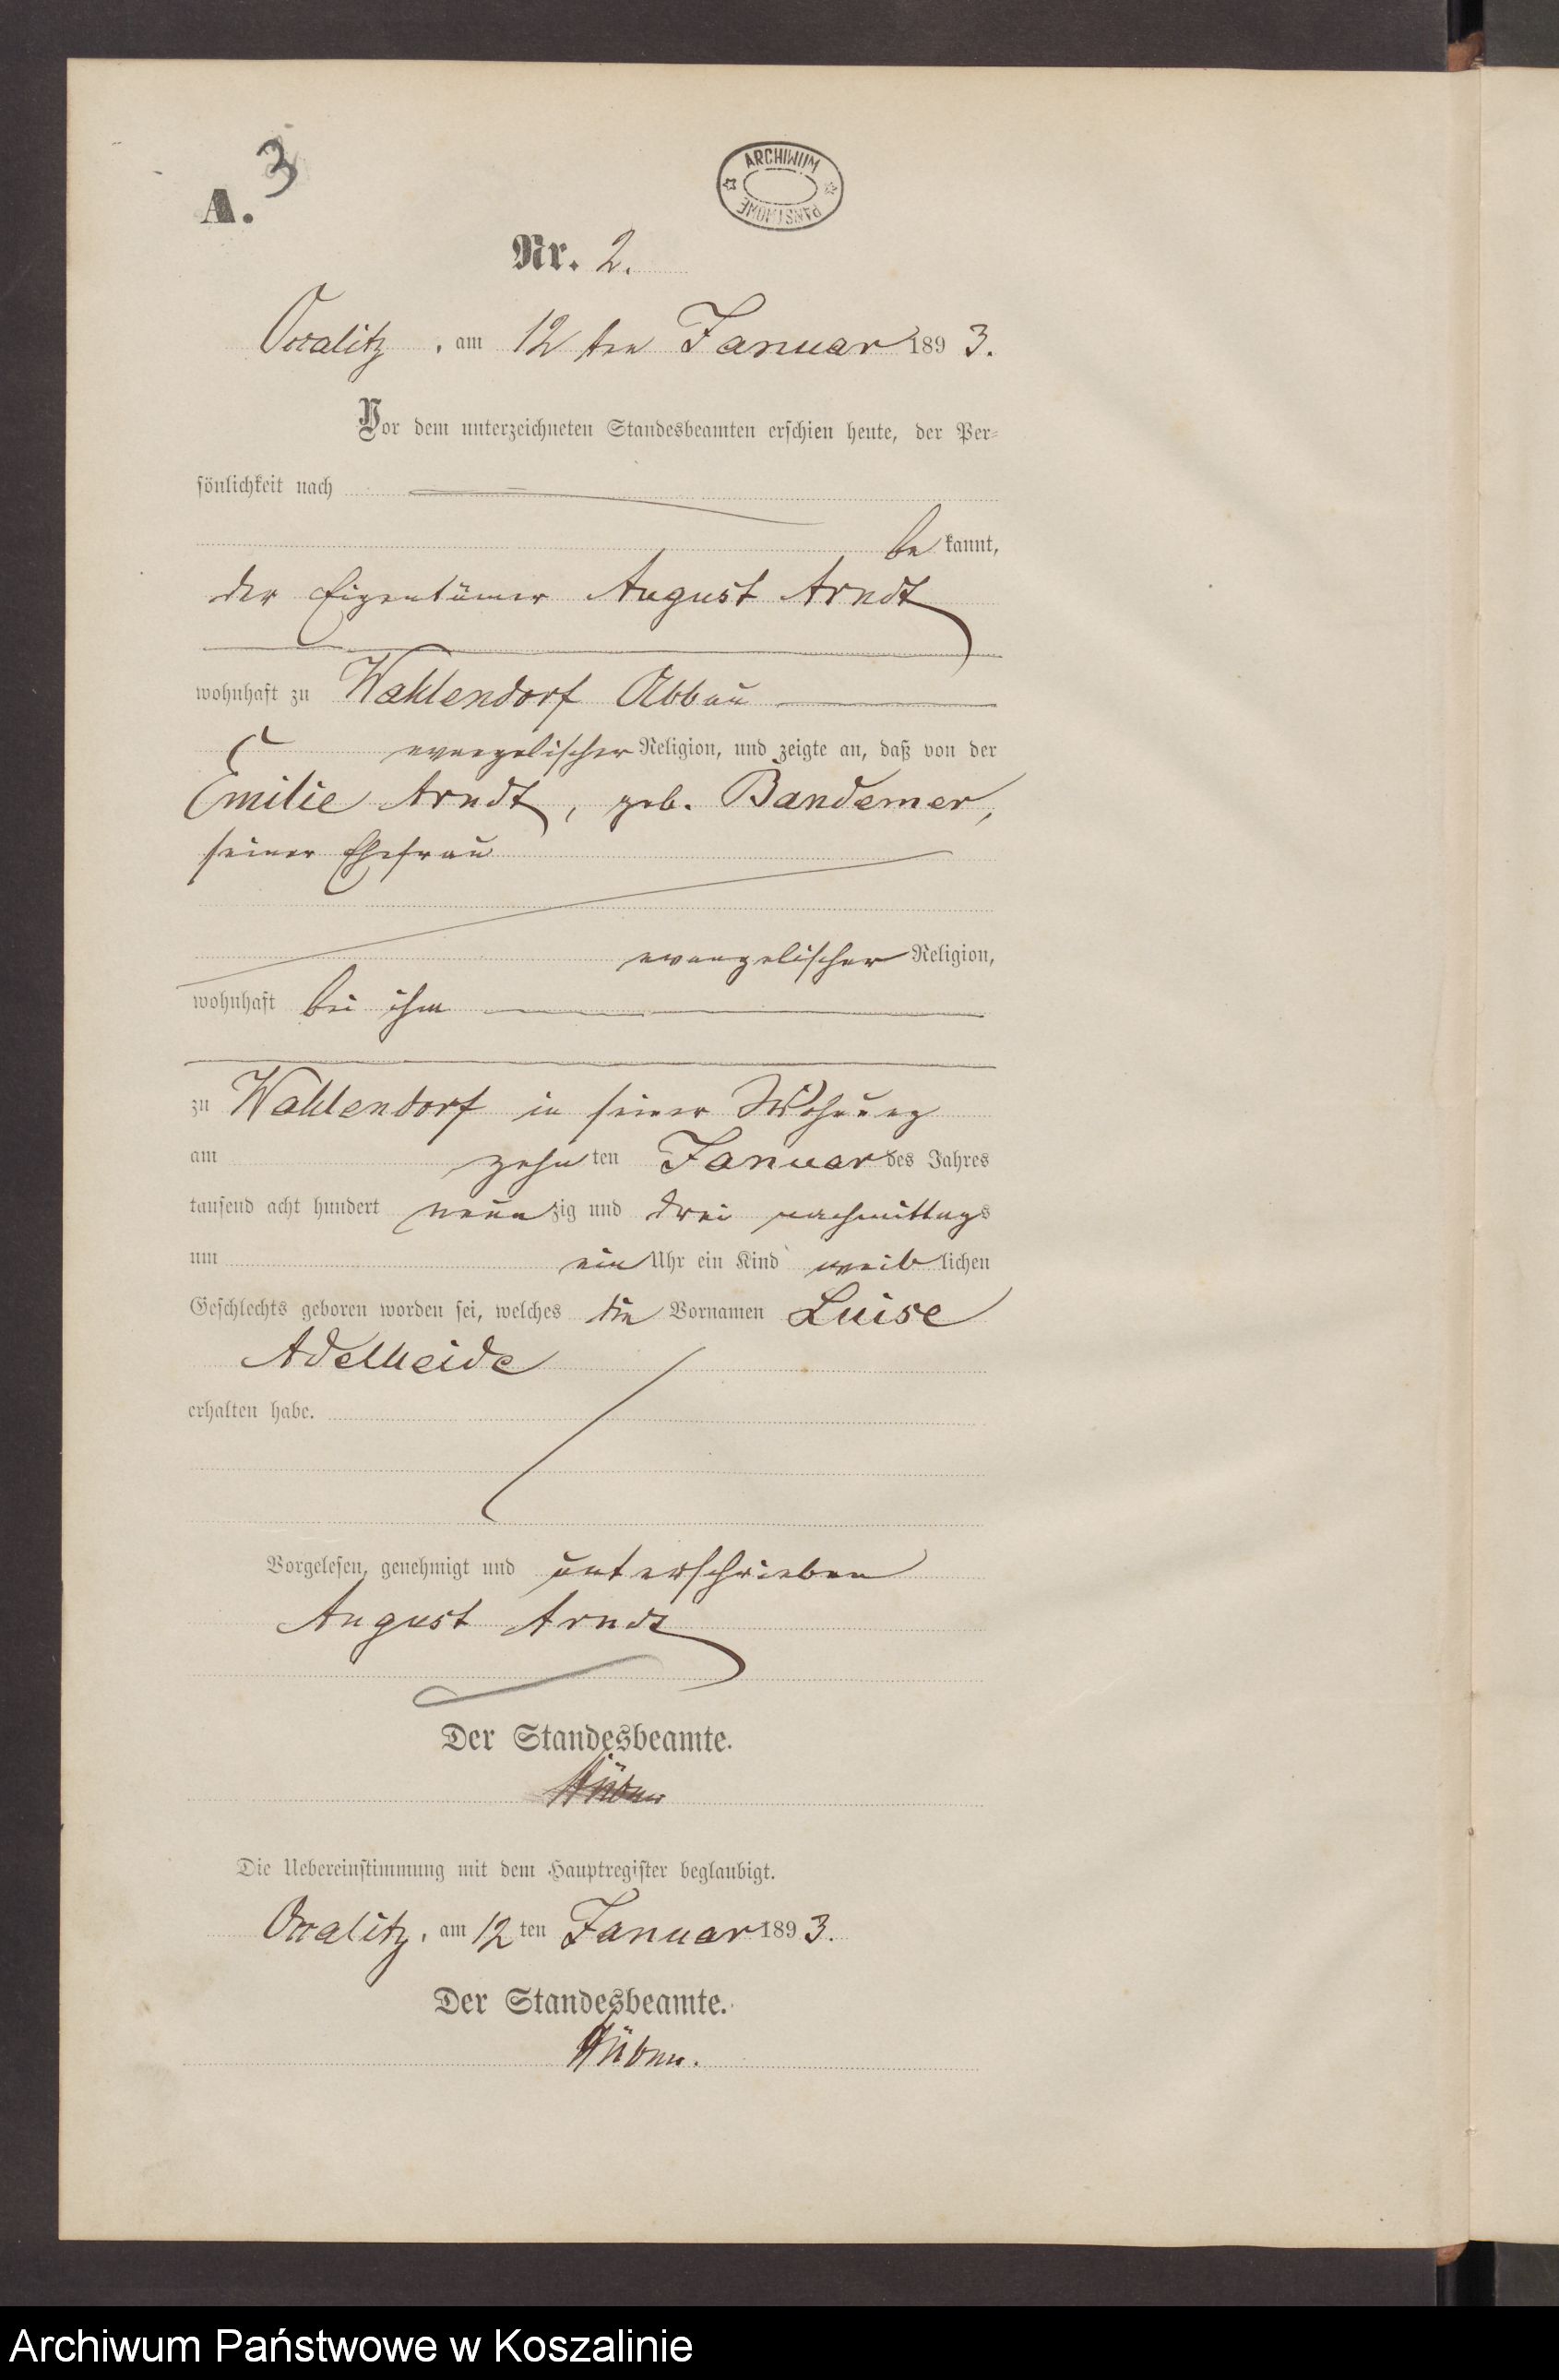 3
A.
ARCHIWUM
PAŃSTWOWE
Nr. 2.
am 12 ten Januar 1893.
Vor dem unterzeichneten Standesbeamten erschien heute, der Per-
sönlichkeit nach
be kannt,
der Eigentümer August Arndt
wohnhaft zu Wahlendorf Abbau
evangelischer Religion, und zeigte an, daß von der
Emilie Arndt, geb. Bandemer,
seiner Ehefrau
evangelischer Religion,
wohnhaft bei ihm
zu Wahlendorf in seiner Wohnung
am zehn ten Januar des Jahres
tausend acht hundert neun zig und drei nachmittags
um ein Uhr ein Kind weib lichen
Geschlechts geboren worden sei, welches die Vornamen Luise
Adelheide
erhalten habe.
Vorgelesen, genehmigt und unterschrieben
August Arndt
Der Standesbeamte.
Die Uebereinstimmung mit dem Hauptregister beglaubigt.
am 12 ten Januar 1893.
Der Standesbeamte.
Archiwum Państwowe w Koszalinie